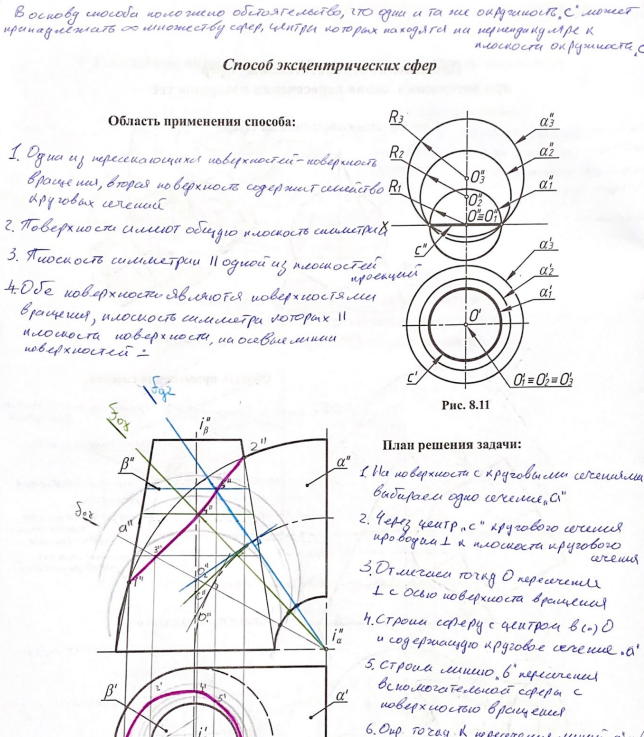 В основу способа положено обстоятельство, что одна и та же окружность „с" может
принадлежать ∞ множеству сфер, центры которых находятся на перпендикуляре к
плоскости окружности „с
Способ эксцентрических сфер
Область применения способа:
1. Одна из пересекающихся поверхностей – поверхность
вращения, вторая поверхность содержит семейство
круговых сечений
2. Поверхности имеют общую плоскость симметрии
3. Плоскость симметрии || одной из плоскостей
проекций
4. Обе поверхности являются поверхностями
вращения, плоскость симметрии которых ||
плоскости поверхности, на осевые линии
поверхностей
R3
R2
R1
α"3
α"2
α"1
O"3
O"2
O"≡O"1
x
c"
α'3
α'2
α'1
O'
c'
O'1≡O'2≡O'3
Рис. 8.11
План решения задачи:
1. На поверхности с круговыми сечениями
выбираем одно сечение „а"
2. Через центр „с" кругового сечения
проводим ⊥ к плоскости кругового
сечения
3. Отмечаем точку О пересечения
⊥ с осью поверхности вращения
4. Строим сферу с центром в (·) О
и содержащую круговое сечение „а"
5. Строим линию „в" пересечения
вспомогательной сферы с
поверхностью вращения
6. Опр. точку К пересечения линий
i"β
2"
β"
α"
a"
3"
4"
5"
1"
c"
i"α
β'
α'
2'
4'
5'
i'